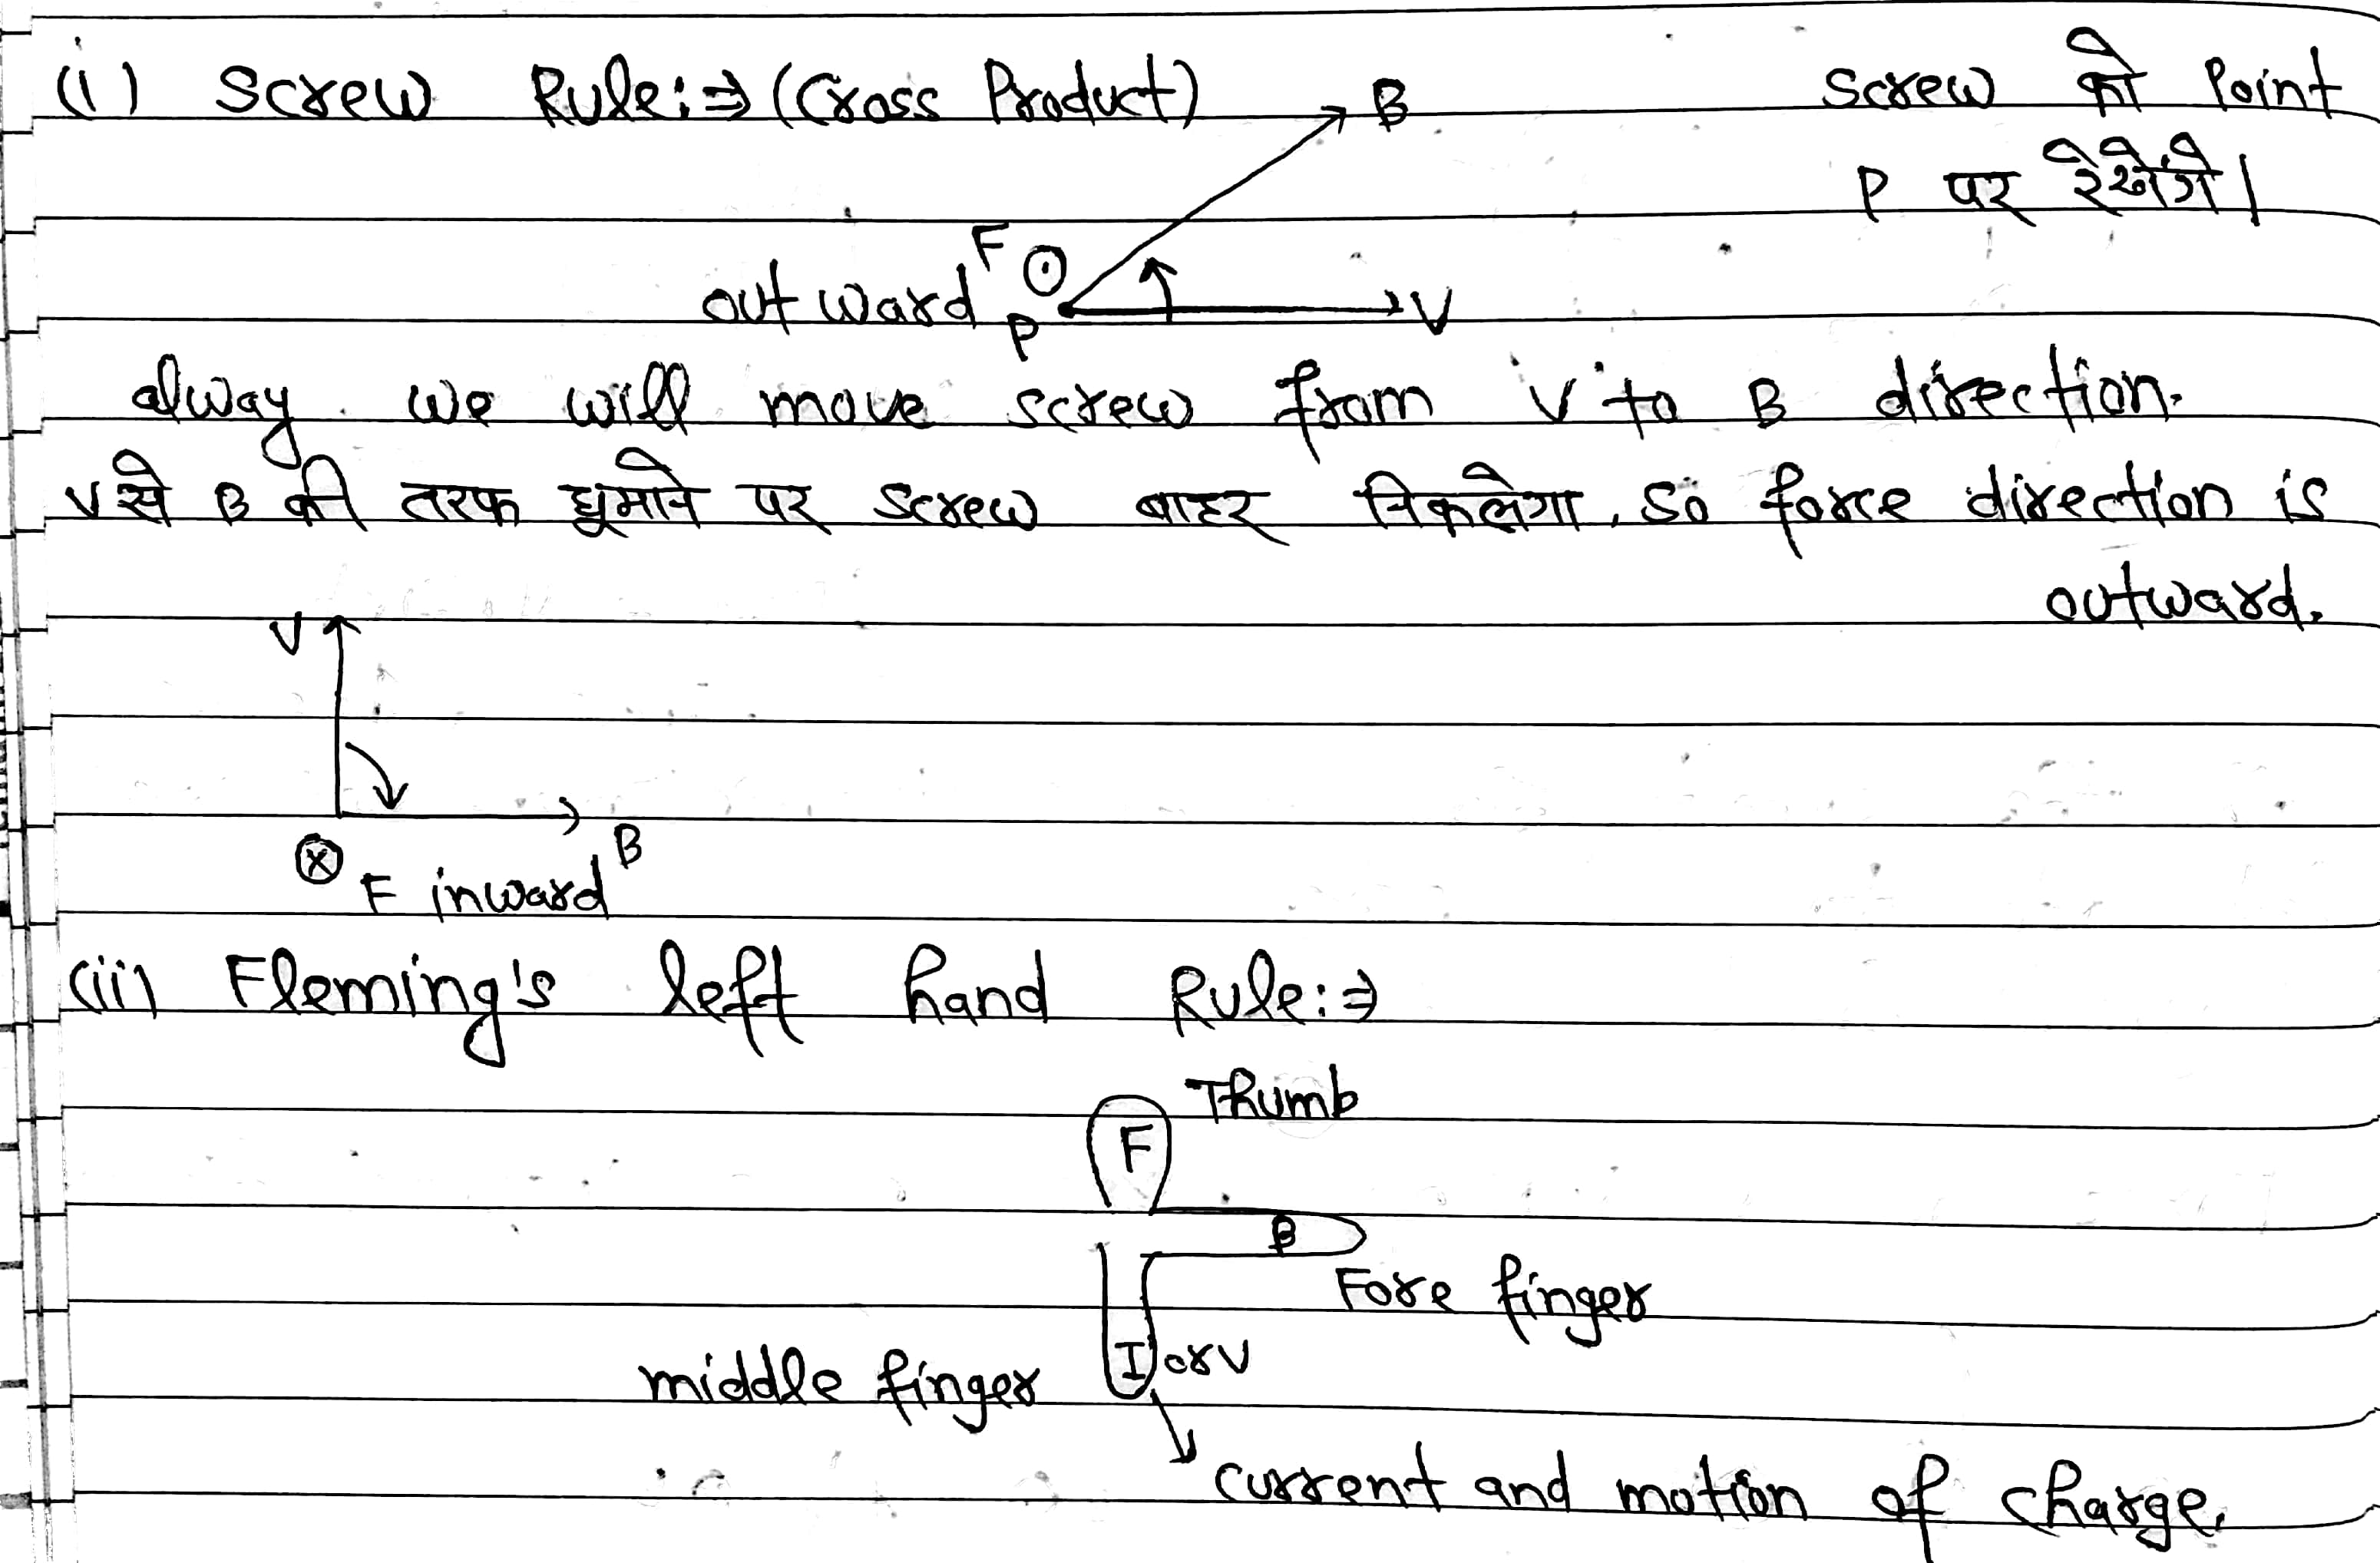 (i) Screw Rule:⇒ (Cross Product) B Screw को Point
P पर रेखेंगे।
F
outward P V
alway we will move screw from V to B direction.
V से B की तरफ घूमाने पर screw बाहर निकलेगा, so force direction is
outward.
V
B
⊗ F inward
(ii) Fleming's left hand Rule:⇒
Thumb
F
B
Fore finger
middle finger I or V
current and motion of charge.